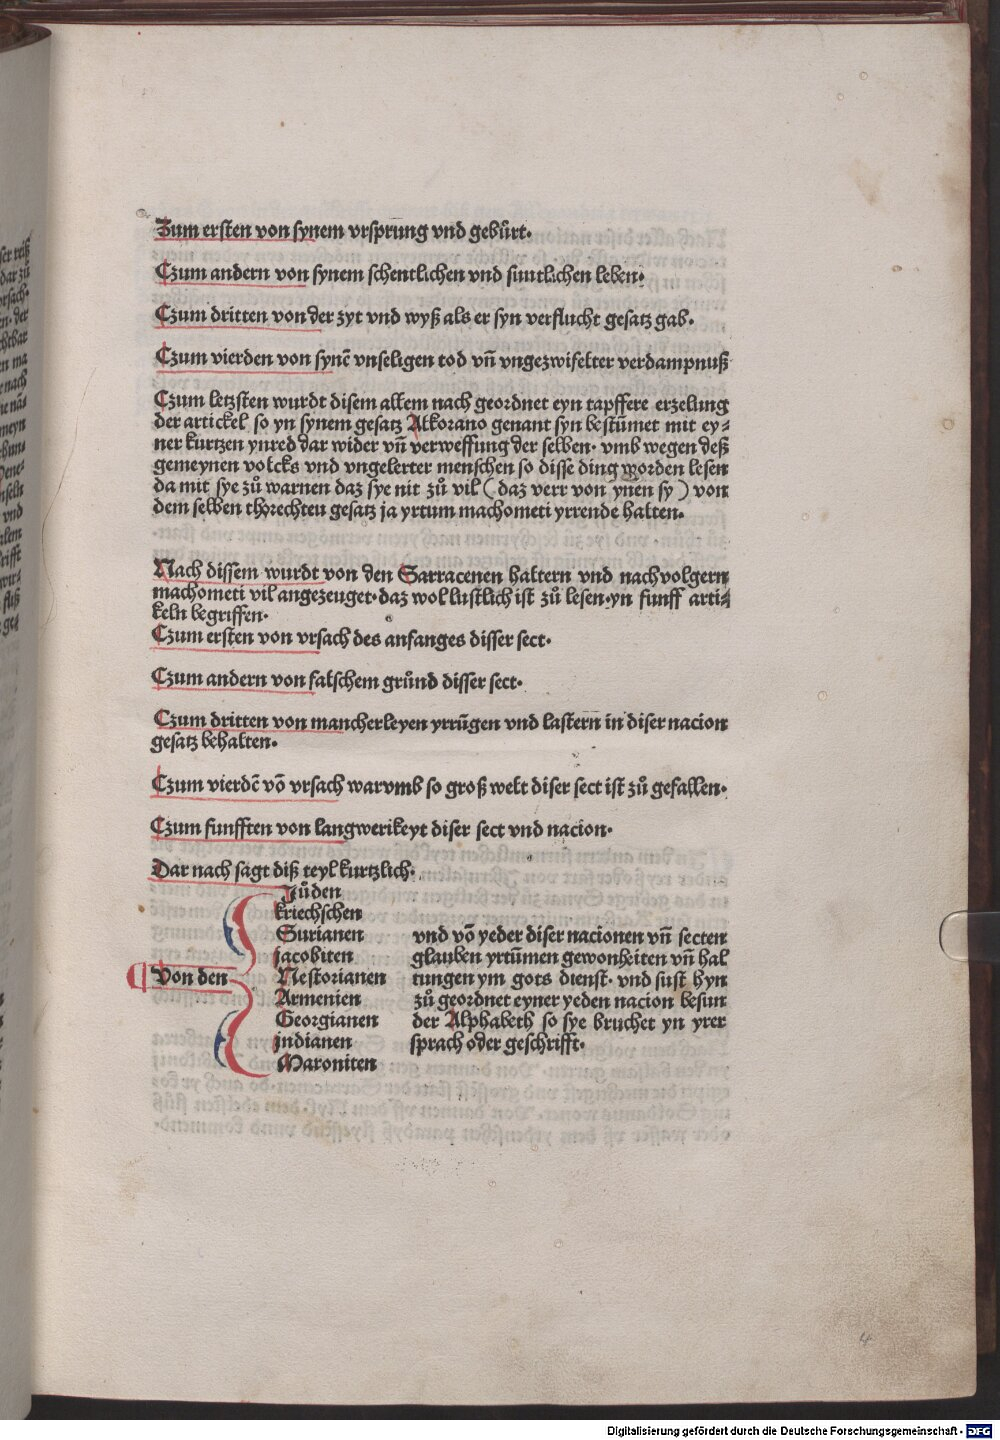 Zum ersten von synem vrsprung vnd gebůrt.
Czum andern von synem schentlichen vnd suntlichen leben.
Czum dritten von der zyt vnd wyß als er syn verflucht gesatz gab.
Czum vierden von synē vnseligen tod vn̄ vngezwifelter verdampnuß
Czum letzsten wurdt disem allem nach geordnet eyn tapffere erzelung
der artickel so yn synem gesatz Alkorano genant syn bestūmet mit ey⸗
ner kurtzen ynred dar wider vn̄ verweffung der selben. vmb wegen deß
gemeynen volcks vnd vngelerter menschen so disse ding worden lesen
da mit sye zů warnen daz sye nit zů vil (daz verr von ynen sy) von
dem selben thorechten gesatz ja yrtum machometi yrrende halten.
Nach dissem wurdt von den Sarracenen haltern vnd nachvolgern
machometi vil angezeuget. daz wol lustlich ist zů lesen. yn funff arti⸗
keln begriffen.
Czum ersten von vrsach des anfanges disser sect.
Czum andern von falschem grůnd disser sect.
Czum dritten von mancherleyen yrrūgen vnd lastern in diser nacion
gesatz behalten.
Czum vierdē vō vrsach warvmb so groß welt diser sect ist zů gefallen.
Czum funfften von langwerikeyt diser sect vnd nacion.
Dar nach sagt diß teyl kurtzlich.
Von den
Jůden
kriechschen
Surianen
jacobiten
Nestorianen
Armenien
Georgianen
jndianen
Maroniten
vnd vō yeder diser nacionen vn̄ secten
glauben yrtūmen gewonheiten vn̄ hal
tungen ym gots dienst. vnd sust hyn
zů geordnet eyner yeden nacion besun
der Alphabeth so sye bruchet yn yrer
sprach oder geschrifft.
4
Digitalisierung gefördert durch die Deutsche Forschungsgemeinschaft - DFG